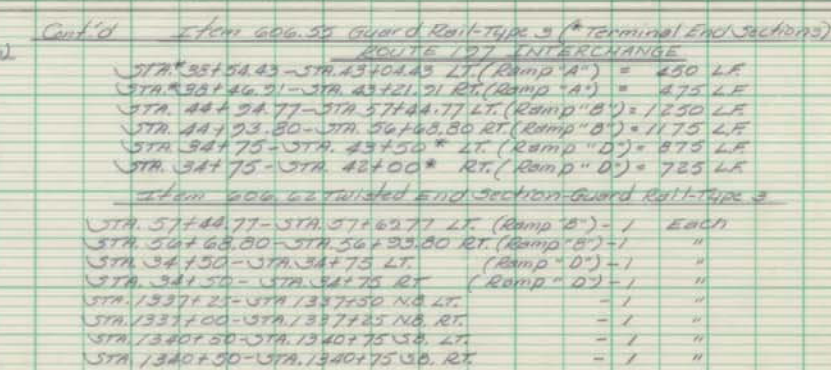 Cont.'d Item 606.55 Guard Rail-Type 3 (* Terminal End Sections)
ROUTE 197 INTERCHANGE
STA.*38+54.43-STA.43+04.43 LT.(Ramp "A") = 450 L.F.
STA.*38+46.91-STA. 43+21.91 RT.(Ramp "A") = 475 L.F.
STA. 44+94.77-STA.57+44.77 LT.(Ramp "B") = 1250 L.F.
STA. 44+93.80-STA. 56+68.80 RT.(Ramp "B") = 1175 L.F.
STA. 34+75-STA. 43+50* LT.(Ramp "D") = 875 L.F.
STA. 34+75-STA. 42+00* RT.(Ramp "D") = 725 L.F.
Item 606.62 Twisted End Section-Guard Rail-Type 3
STA. 57+44.77-STA.57+69.77 LT. (Ramp "B") - 1 Each
STA. 56+68.80-STA.56+93.80 RT.(Ramp "B") - 1 "
STA. 34+50-STA.34+75 LT. (Ramp "D") - 1 "
STA. 34+50-STA.34+75 RT (Ramp "D") - 1 "
STA. 1337+25-STA 1337+50 N.B. LT. - 1 "
STA. 1337+00-STA.1337+25 N.B. RT. - 1 "
STA. 1340+50-STA.1340+75 S.B. LT. - 1 "
STA. 1340+50-STA.1340+75 S.B. RT. - 1 "